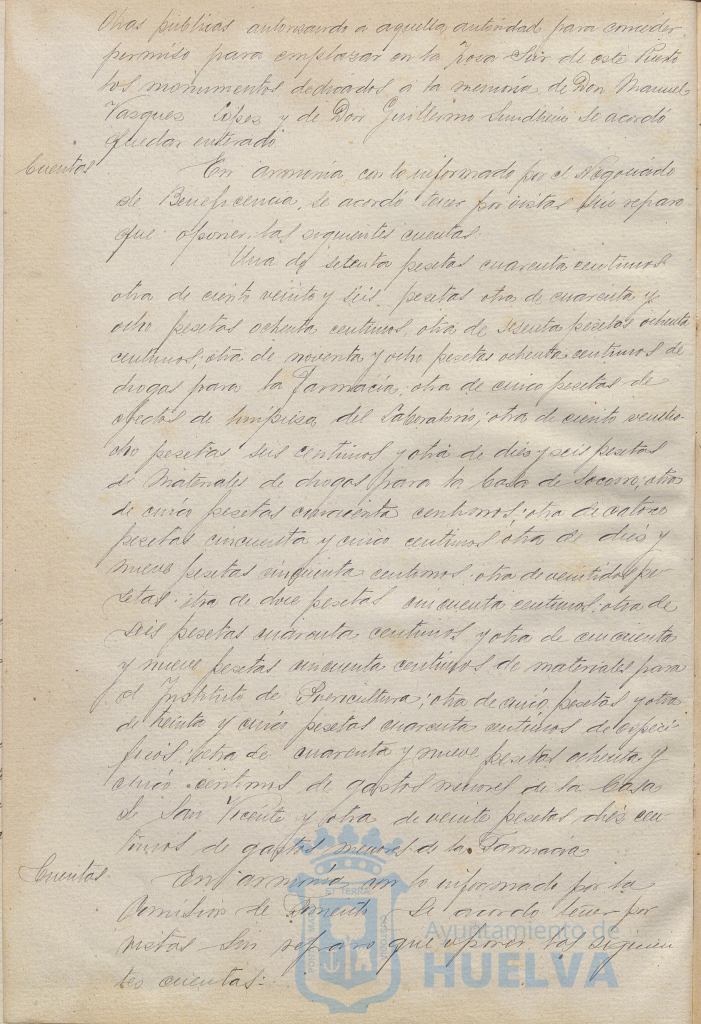 Obras públicas autorizando a aquella autoridad para conceder
permiso para emplazar en la Zona Sur de este Puerto
los monumentos dedicados a la memoria de Don Manuel
Vazquez López y de Don Guillermo Sundheim se acordó
quedar enterado
Cuentas
En armonía con lo informado por el Negociado
de Beneficencia, se acordó tener por vistas sin reparo
que oponer, las siguientes cuentas.
Una de setenta pesetas cuarenta centimos
otra de ciento veinte y seis pesetas otra de cuarenta y
ocho pesetas ochenta centimos, otra de sesenta pesetas ochenta
centimos, otra de noventa y ocho pesetas ochenta centimos de
drogas para la Farmacia; otra de cinco pesetas de
efectos de limpieza del Laboratorio; otra de ciento veintio-
cho pesetas seis centimos y otra de diez y seis pesetas
de materiales de drogas para la Casa de Socorro; otra
de cinco pesetas cincuenta centimos; otra de catorce
pesetas cincuenta y cinco centimos otra de diez y
nueve pesetas cincuenta centimos, otra de veintidos pe-
setas; otra de doce pesetas cincuenta centimos; otra de
seis pesetas cuarenta centimos y otra de cincuenta
y nueve pesetas cincuenta centimos de materiales para
el Instituto de Puericultura; otra de cinco pesetas y otra
de treinta y cinco pesetas cuarenta centimos de especí-
ficos; otra de cuarenta y nueve pesetas ochenta y
cinco centimos de gastos menores de la Casa
de San Vicente y otra de veinte pesetas diez cen-
timos de gastos menores de la Farmacia
Cuentas
En armonía con lo informado por la
Comisión de Fomento se acordo tener por
vistas sin reparo que oponer las siguien-
tes cuentas:
Ayuntamiento de
HUELVA